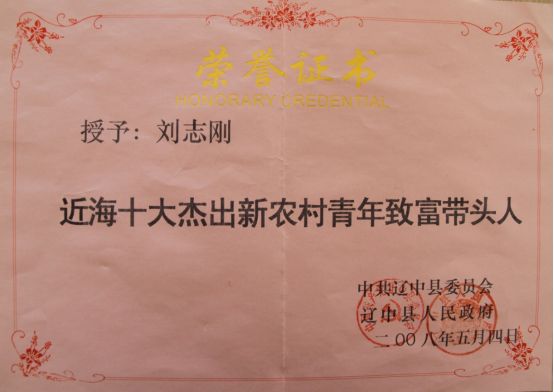 荣誉证书
HONORARY CREDENTIAL
授予：刘志刚
近海十大杰出新农村青年致富带头人
中共辽中县委员会
辽中县人民政府
二00八年五月四日